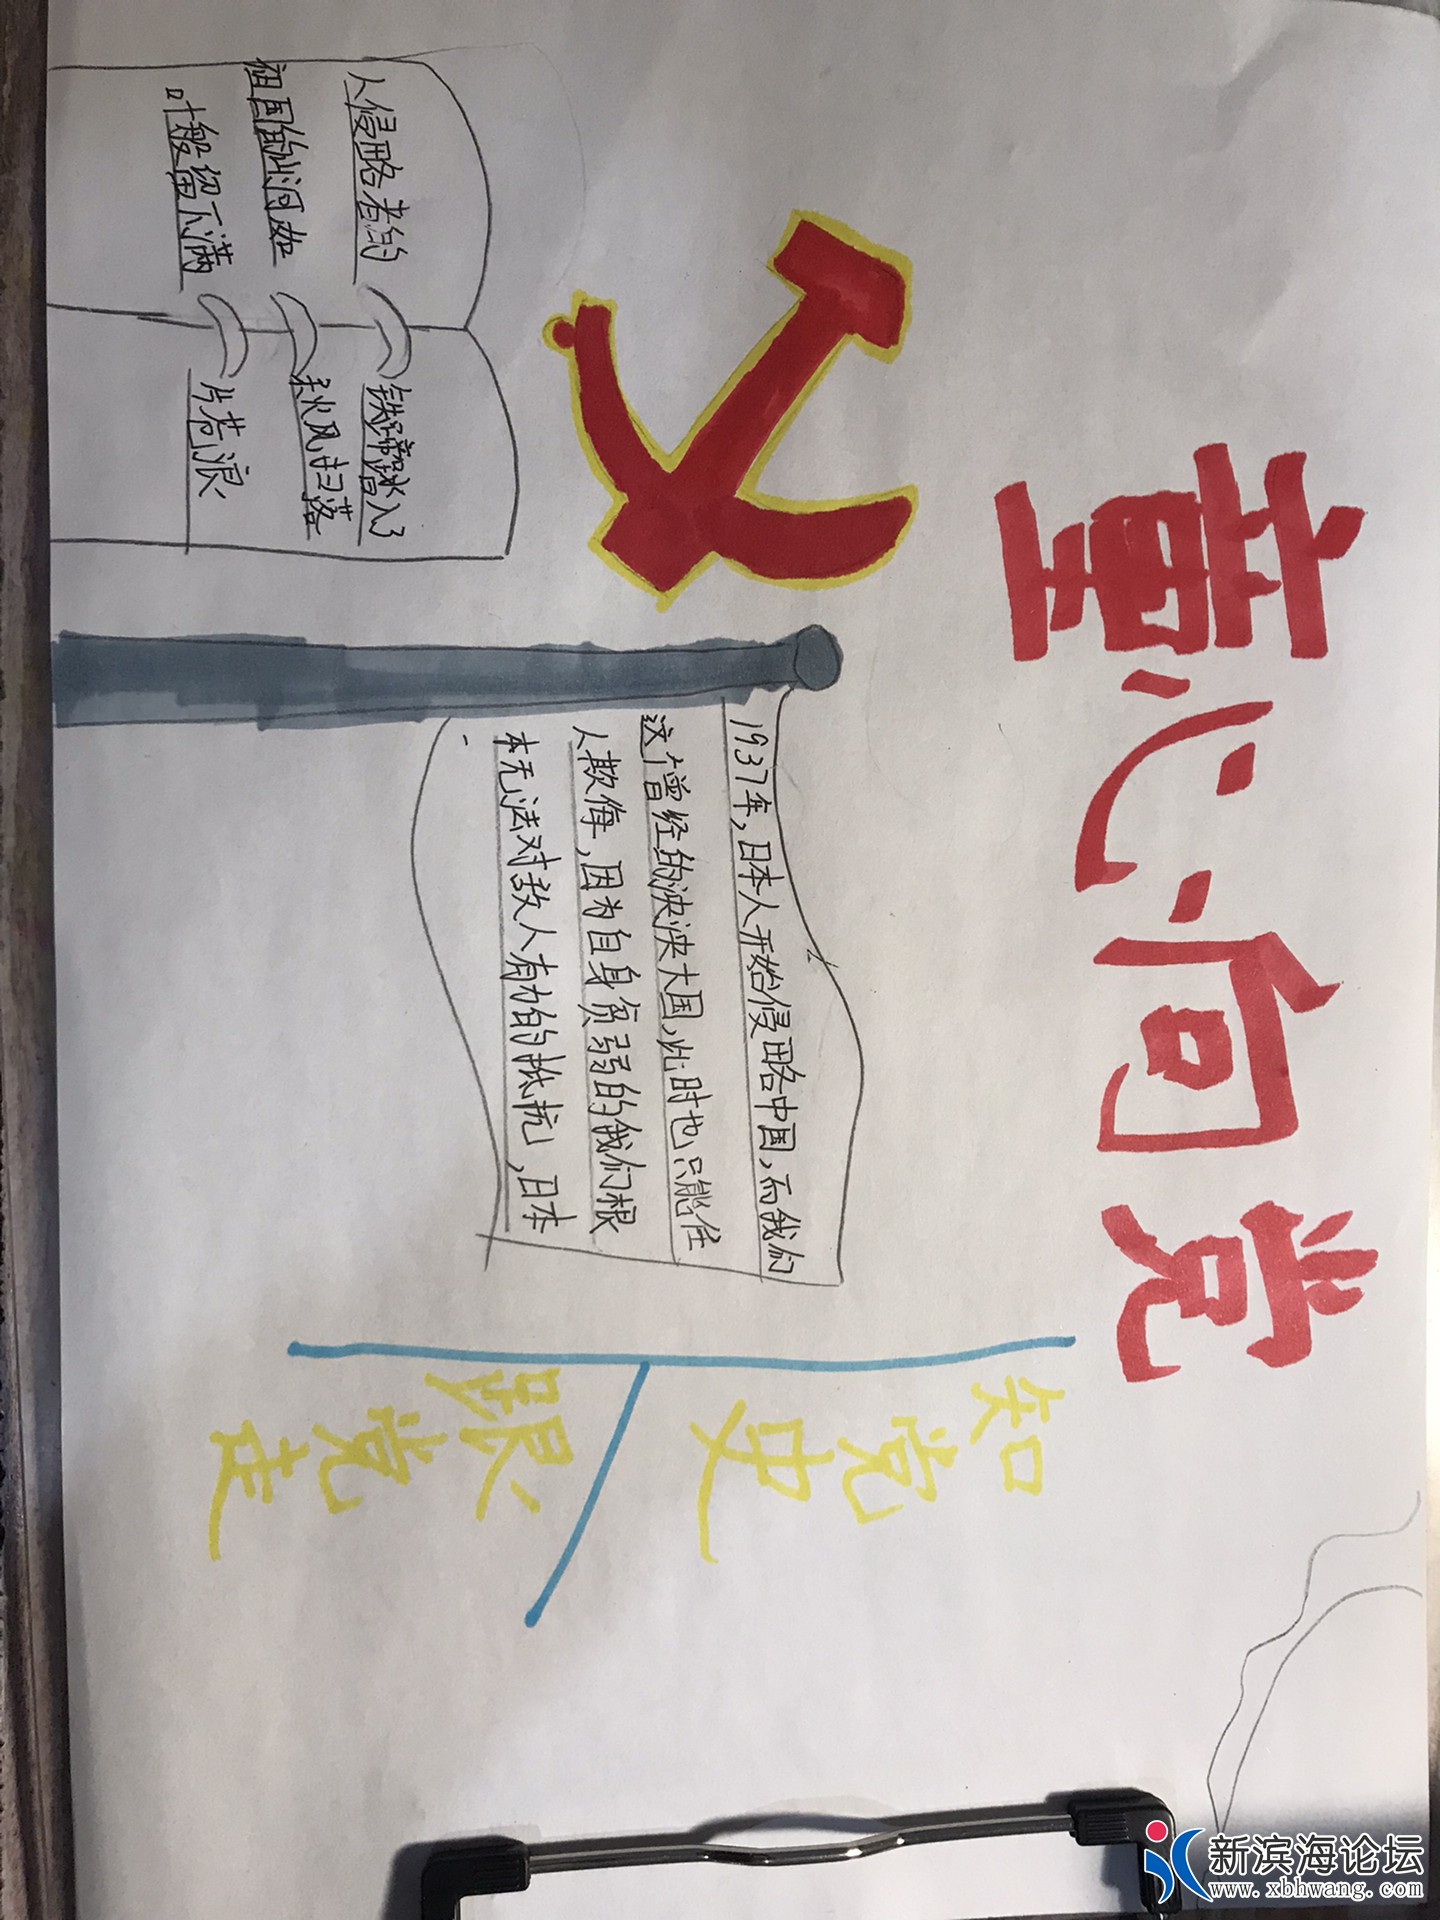 童心向党
人侵略者的 铁蹄踏入了
祖国的山河如 秋风扫落
叶般留下满 片苍浪
1937年，日本人开始侵略中国，而我们
这个曾经的泱泱大国，此时也只能任
人欺侮，因为自身贫弱的我们根
本无法对敌人有力的抵抗，日本
知党史
跟党走
新滨海论坛
www.xbhwang.com